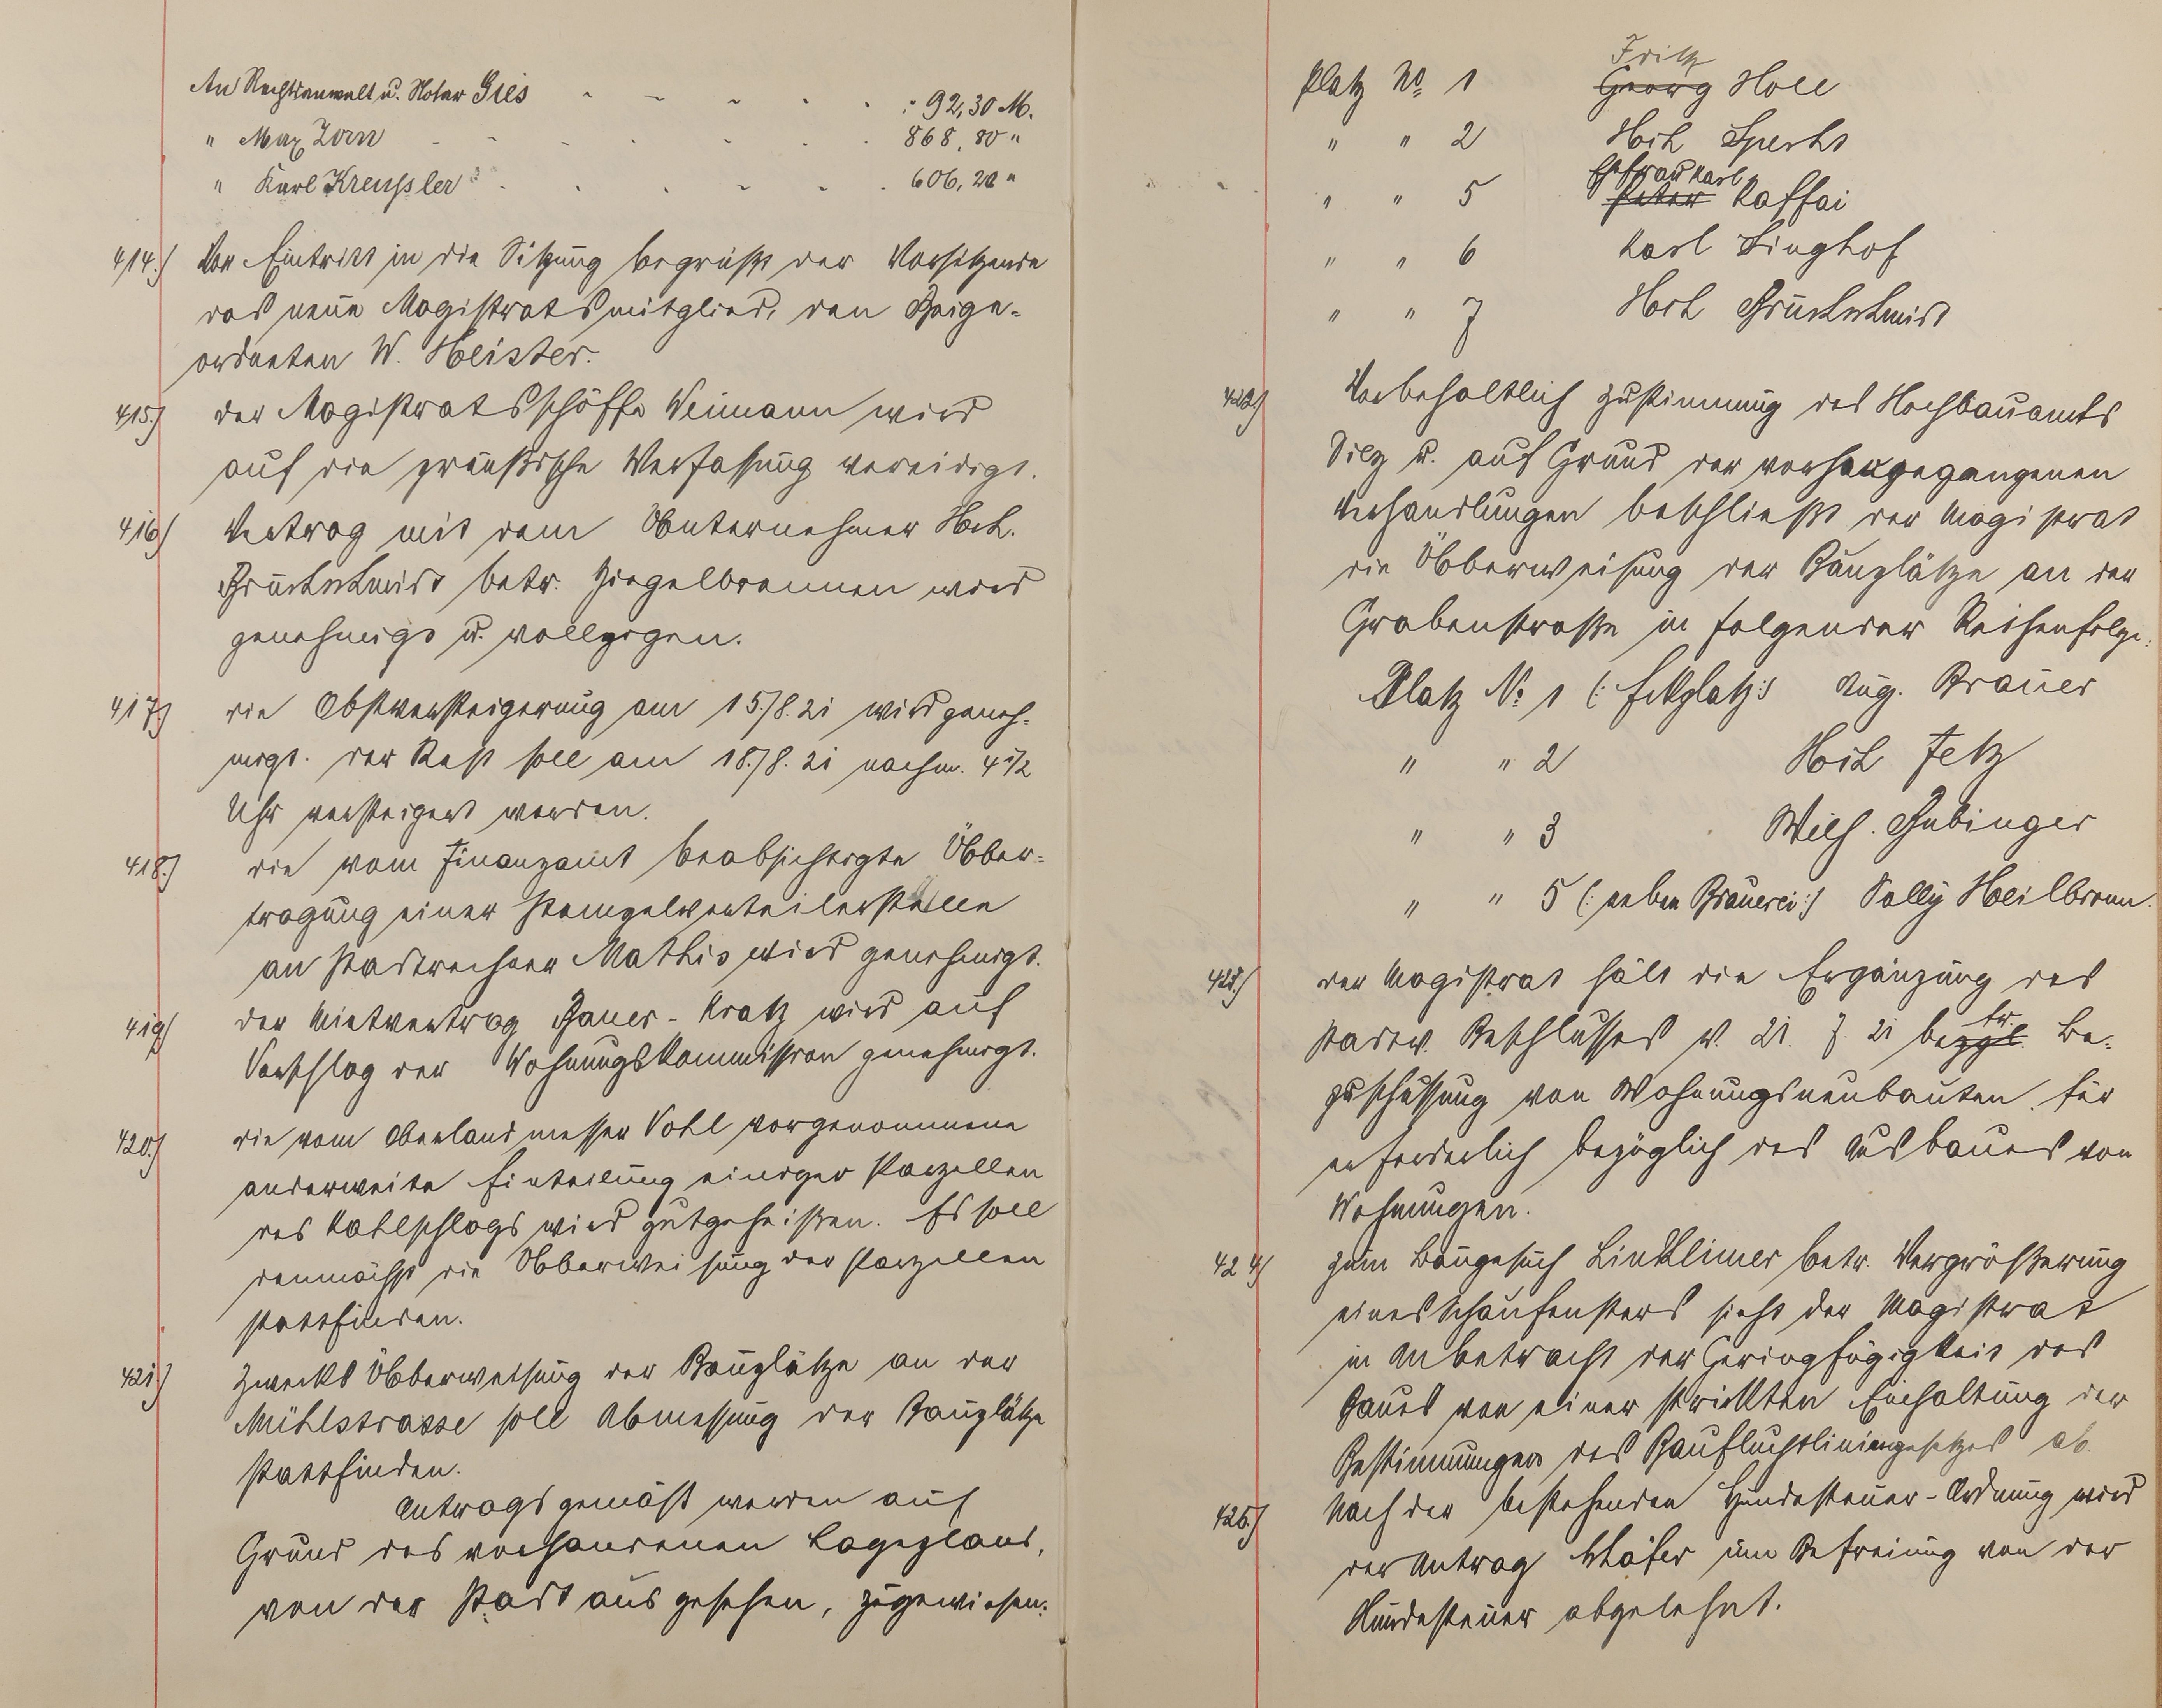 An Rechtsanwalt u. Notar Gies - - - - - : 92,30 M.
" Max Zorn - - - - - - - 868,80 "
" Karl Kreussler - - - - - - 606,20 "
414.) Vor Eintritt in die Sitzung begrüßt der Vorsitzende
das neue Magistratsmitglied, den Beige-
ordneten W. Heister.
415.) der Magistratsschöffe Weimann wird
auf die preußische Verfassung vereidigt.
416) Vertrag mit dem Unternehmer Hch.
Grückschmidt betr. Ziegelbrennen wird
genehmigt u. vollzogen.
417.) die Obstversteigerung am 15./8. 21 wird geneh-
migt. der Rest soll am 18./8. 21 nachm. 4 1/2
Uhr versteigert werden.
418.) die vom Finanzamt beabsichtigte Über-
tragung einer Stempelverteilerstelle
an Stadtrechner Mathis wird genehmigt.
419.) der Mietvertrag Bauer - Kratz wird auf
Vorschlag der Wohnungskommission genehmigt.
420.) die vom Oberlandmesser Vohl vorgenommene
anderweite Einteilung einiger Parzellen
des Kahlschlags wird gutgeheißen. Es soll
demnächst die Überweisung der Parzellen
stattfinden.
421.) Zwecks Überweisung der Bauplätze an der
Mühlstrasse soll Abmessung der Bauplätze
stattfinden.
Antragsgemäß werden auf
Grund des vorhandenen Lageplans,
von der Stadt aus gesehen, zugewiesen:
Fritz
Platz No. 1 Georg Holl
" " 2 Hch Specht
Ehefrau Karl
" " 5 Peter Kaffai
" " 6 Karl Dinghof
" " 7 Hch Grückschmidt
422.) Vorbehaltlich Zustimmung des Hochbauamts
Dilz u. auf Grund der vorhergegangenen
Verhandlungen beschließt der Magistrat
die Überweisung der Bauplätze an der
Grabenstraße in folgender Reihenfolge:
Platz No. 1 (: Eckplatz :) Aug. Brauer
" " 2 Hch Jetz
" " 3 Wilh. Gabinger
" " 5 (: neben Brauerei :) Sally Heilbronn.
423.) der Magistrat hält die Ergänzung des
Stadtv. Beschlusses v. 21. 7. 21 bezgl. tr. Be-
zuschussung von Wohnungsneubauten für
erforderlich bezüglich des Ausbaues von
Wohnungen.
424.) Zum Baugesuch Linkelimer betr. Vergrößerung
eines Schaufensters sieht der Magistrat
in Anbetracht der Geringfügigkeit des
Baues von einer strickten Einhaltung der
Bestimmungen des Baufluchtliniengesetzes ab.
425.) Nach der bestehenden Hundesteuer-Ordnung wird
der Antrag Schäfer um Befreiung von der
Hundesteuer abgelehnt.